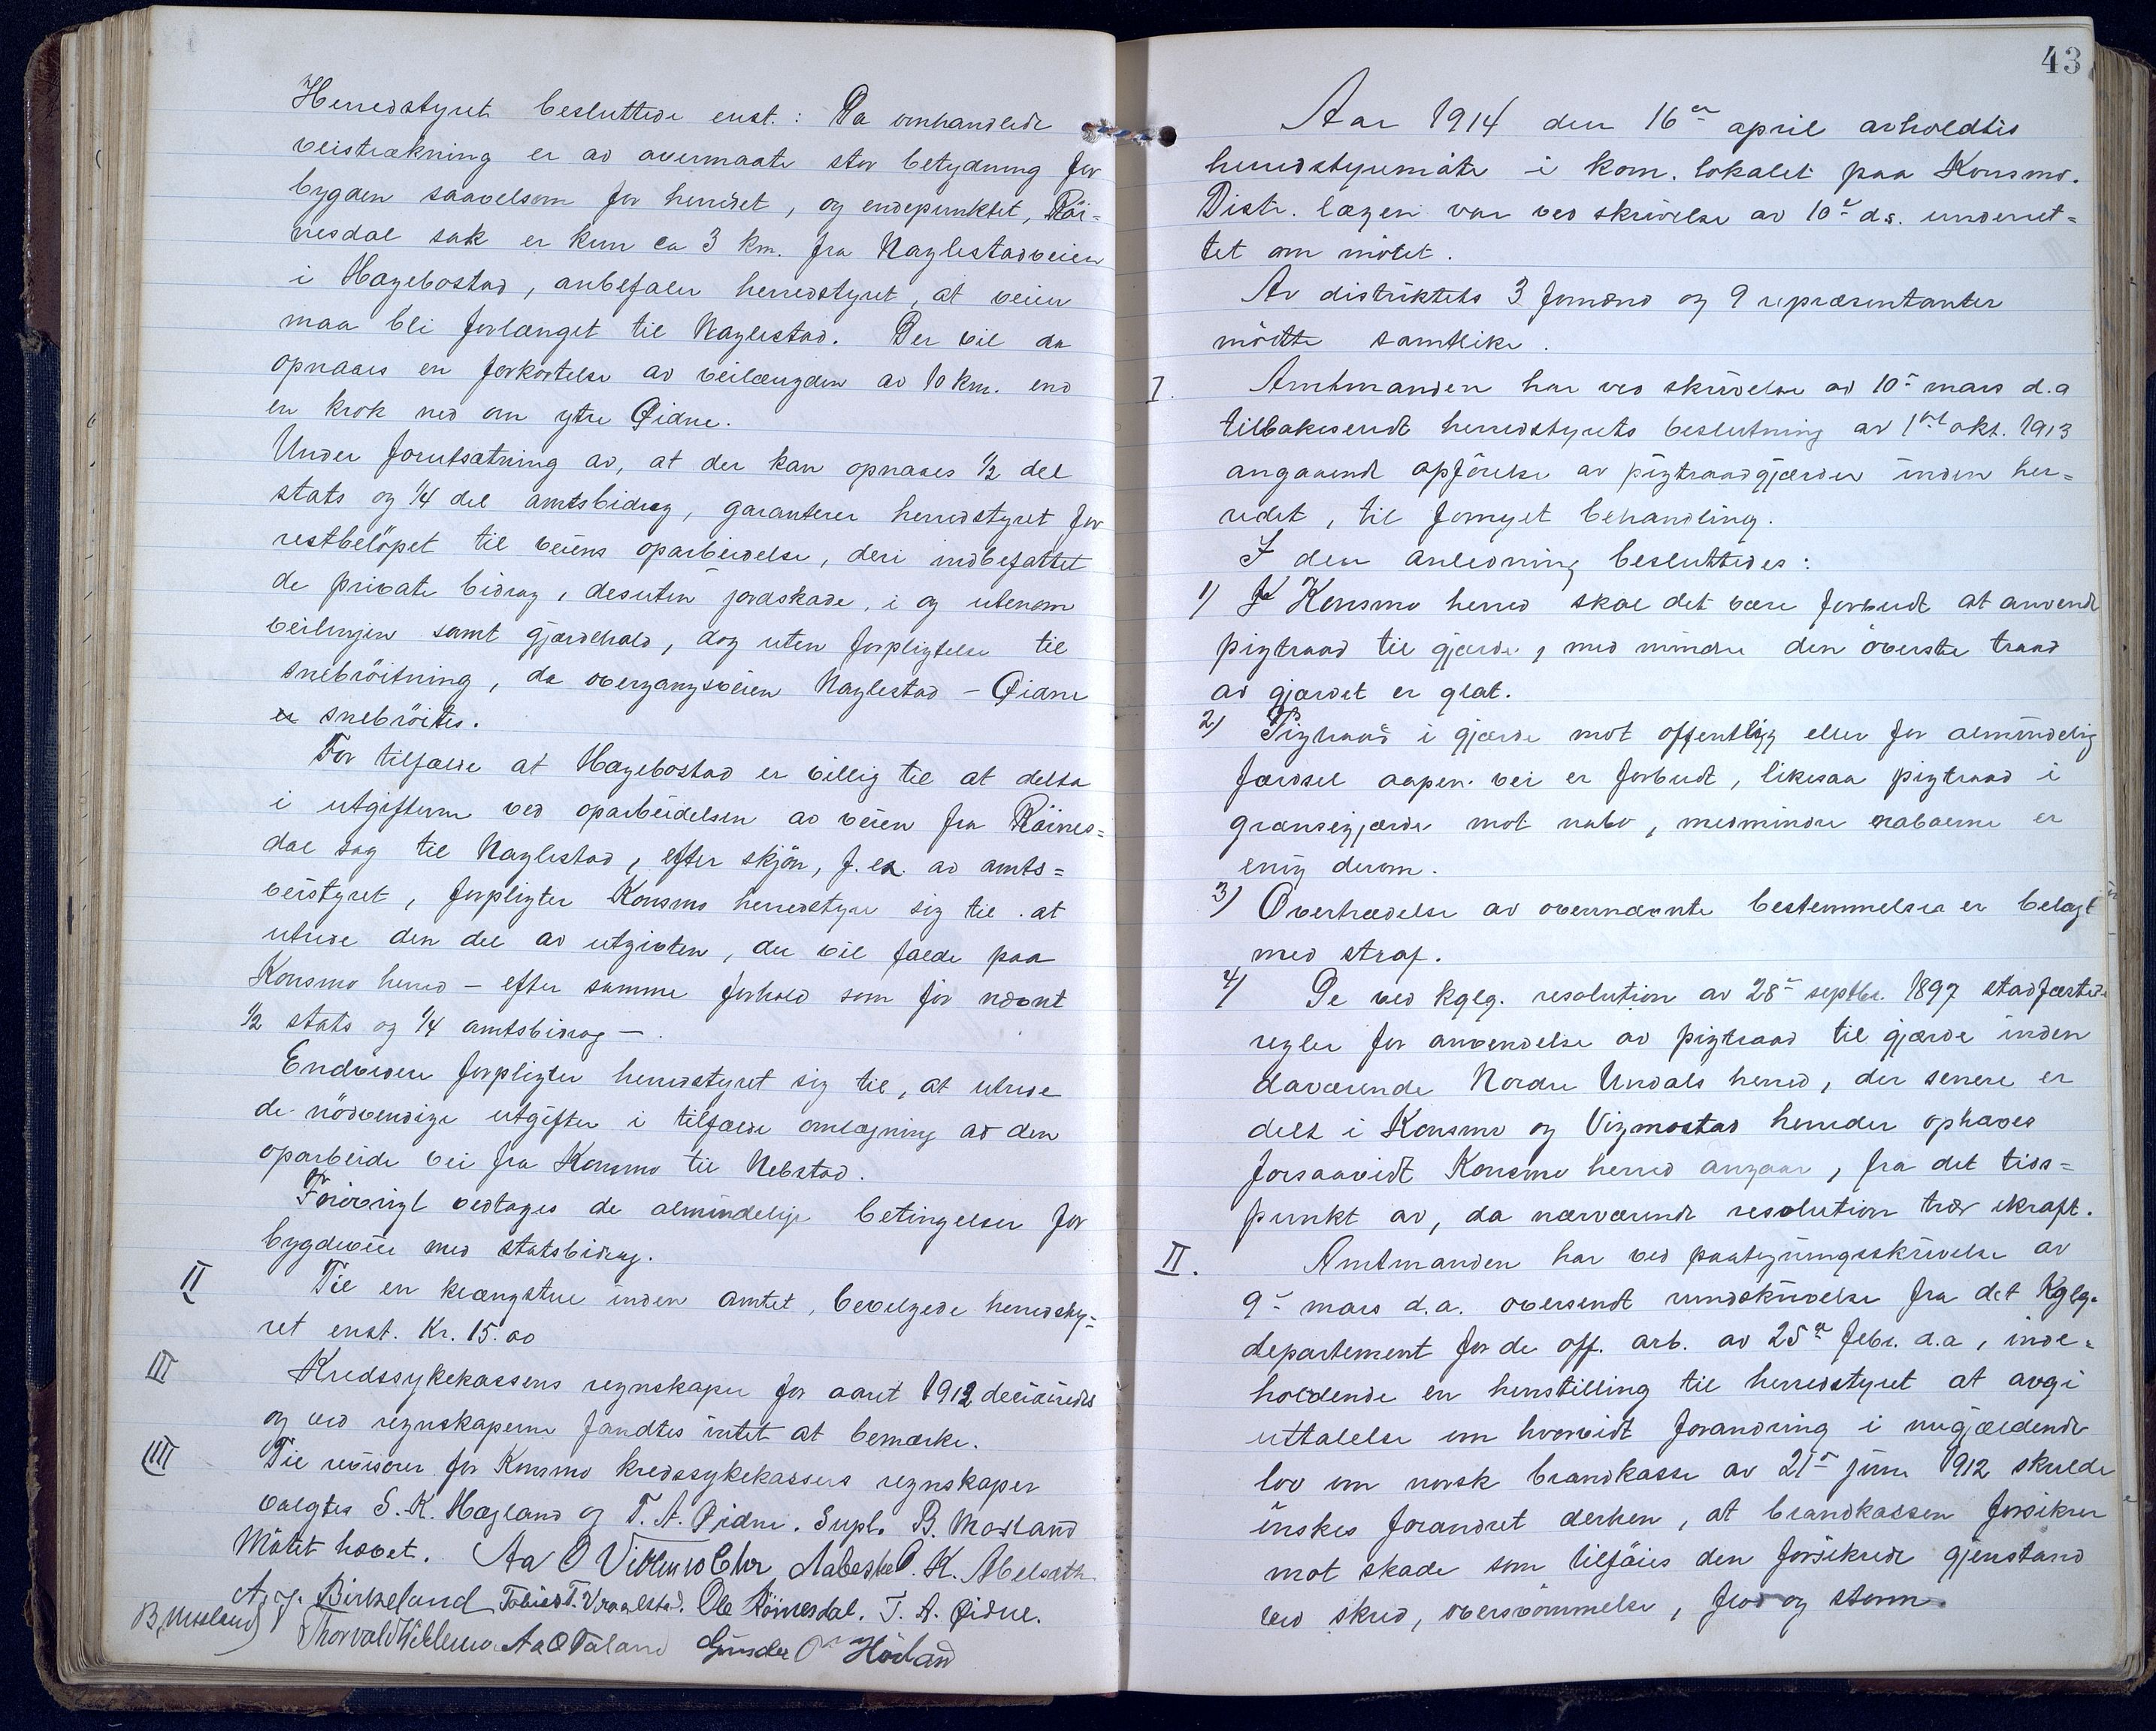 Herredstyret besluttede enst.: Da omhandlede
veistrækning er av overmaate stor betydning for
bygden saavelsom for herredet, og endepunktet, Röi-
nesdal sak er kun ca 3 km. fra Naglestadveien
i Hægebostad, anbefaler herredstyret, at veien
maa bli forlænget til Naglestad. Der vil da
opnaaes en forkortelse av veilængden av 10 km. end
en krok ned om ytre Øidne.
Under forutsætning av, at der kan opnaaes 1/2 del
stats og 1/4 del amtsbidrag, garanterer herredstyret for
restbelöpet til veiens oparbeidelse, deri indbefattet
de private bidrag, desuten jordskade, i og utenom
veilinjen samt gjærdehold, dog uten forpligtelse til
snebröitning, da overgangsveien Naglestad – Øidne
er snebröites.
For tilfælde at Hægebostad er villig til at delta
i utgifterne ved oparbeidelsen av veien fra Röines=
dal sag til Naglestad, efter skjön, f. ex. av amts=
veistyret, forpligter Konsmo herredstyre sig til at
utrede den del av utgivten, der vil falde paa
Konsmo herred – efter samme forhold som för nævnt
1/2 stats og 1/4 amtsbidrag –.
Endvidere forpligter herredstyret sig til, at utrede
de nödvendige utgifter i tilfælde omlægning av den
oparbeide vei fra Konsmo til Nebstad.
Forövrigt vedtages de almindelige betingelser for
bygdeveie med statsbidrag.
II Til en krængstue inden amtet, bevilgede herredsty=
ret enst. Kr. 15.00
III Kredssykekassens regnskaper for aaret 1912 deciderdes
og ved regnskaperne fandtes intet at bemærke.
IIII Til revisorer for Konsmo kredssykekasses regnskaper
valgtes S. K. Hægland og T. A. Øidne. Supl. B. Mosland
Mötet hævet. Aa O Vivlemo Chr. Aabedal O. K. Abelseth
A. J. Birkeland Tobias T. Vraalstad. Ole Röinesdal. T. A. Øidne.
B. Mosland Thorvald Viblemo Aa O Faland Gunder O Hörland
43
Aar 1914 den 16de april avholdtes
herredstyremöte i kom. lokalet paa Konsmo.
Distr. lægen var ved skrivelse av 10de ds. underret=
tet om mötet.
Av distriktets 3 formænd og 9 repræsentanter
mötte samtlike.
I. Amtmanden har ved skrivelse av 10de mars d.a
tilbakesendt herredstyrets beslutning av 1ste okt. 1913
angaaende opförelse av pigtraadgjærder inden her=
redet, til fornyet behandling.
I den anledning besluttedes:
1) I Konsmo herred skal det være forbudt at anvende
pigtraad til gjærde, med mindre den överste traad
av gjærdet er glat.
2) Pigtraad i gjærde mot offentlig eller for almindelig
færdsel aapen vei er forbudt, likesaa pigtraad i
grænsegjærde mot nabo, medmindre naboerne er
enig derom.
3) Overtrædelse av ovennævnte bestemmelser er belagt
med straf.
4) De ved kglg. resolution av 28de septbr. 1897 stadfæstede
regler for anvendelse av pigtraad til gjærde inden
daværende Nordre Undals herred, der senere er
delt i Konsmo og Vigmostad herreder ophæves
forsaavidt Konsmo herred angaar, fra det tids=
punkt av, da nærværende resolution trær ikraft.
II. Amtmanden har ved paategningsskrivelse av
9de mars d.a. oversendt rundskrivelse fra det Kglg.
departement for de off. arb. av 25de febr. d.a, inde=
holdende en henstilling til herredstyret at avgi
uttalelse om hvorvidt forandring i nugjældende
lov om norsk brandkasse av 21de juni 1912 skulde
önskes forandret derhen, at brandkassen forsikrer
mot skade som tilföies den forsikrede gjenstand
ved skred, oversvömmelse, frod og storm.